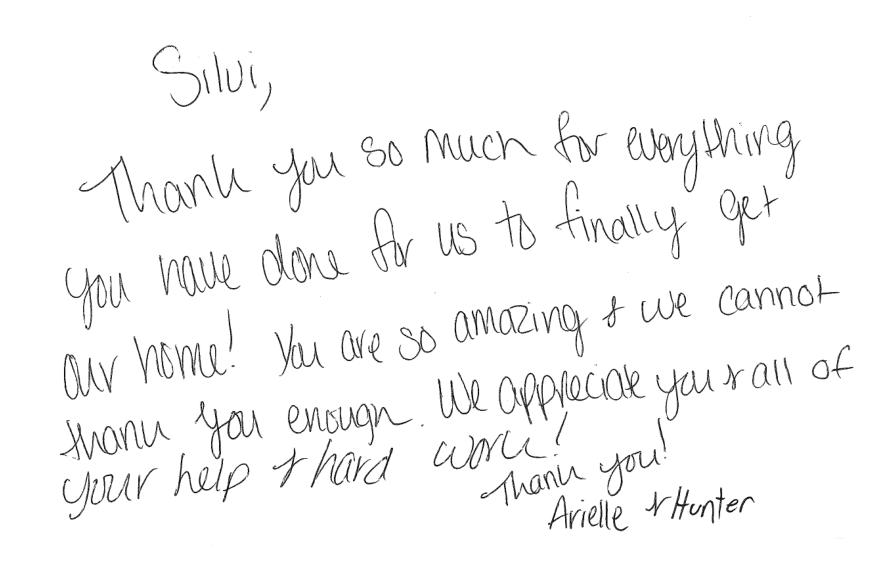 Silvi,
Thank you so much for everything
you have done for us to finally get
our home! You are so amazing & we cannot
thank you enough. We appreciate you & all of
your help & hard work!
Thank you!
Arielle & Hunter